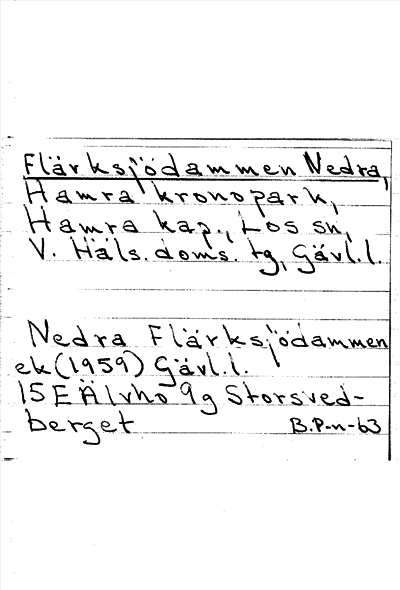 Flärksjödammen Nedra,
Hamra kronopark,
Hamra kap., Los sn,
V. Häls. doms. tg, Gävl.l.
Nedra Flärksjödammen
ek (1959) Gävl.l.
15 E Älvho 9g Storsved-
berget B.P-n-63